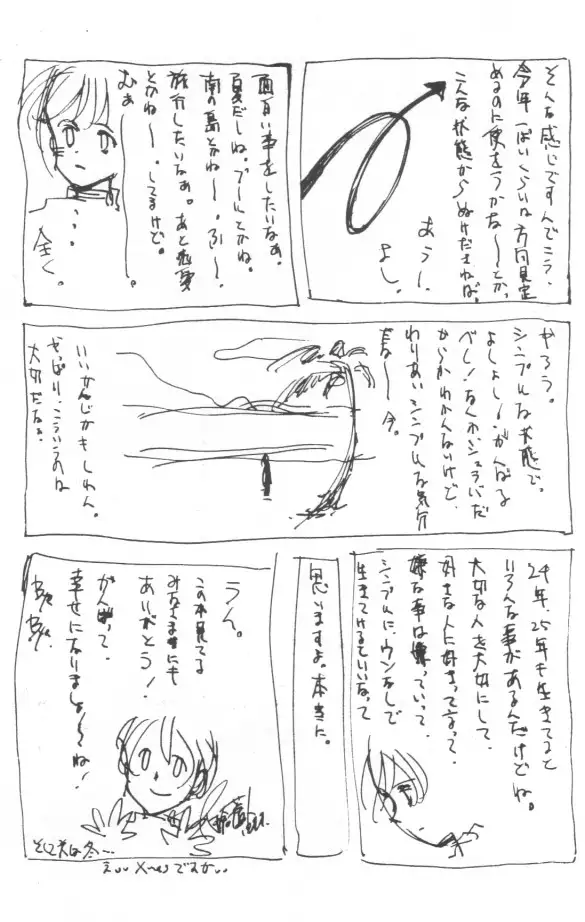 そんな感じですんでこう、
今年一ぱいくらいは方向見定
めるのに使をうかな〜とか。
こんな状態からぬけださねば。
あうー、
よし。
面白い事をしたいなぁ。
夏だしね。プールとかね。
南の島とかね〜。ふ〜。
旅行したいなぁ。あと恋愛
とかね〜。してるけど。
むぁ〜〜。
・・・
全く。
やろう。
シンプルな状態で。
よしょし!がんばる
べし!なんかシュラバだ
からかわかんないけど、
わりあいシンプルな気分
だな〜今。
いいかんじかもしれん。
やっぱり、こういうのは
大切だなぁ。
24年、25年も生きてると
いろんな事があるんだけどね。
大切な人を大切にして、
好きな人に好きって言って、
嫌な事は嫌っていって、
シンプルに、ウソなしで
生きてけるといいなって
思いますよ。本当に。
うん。
この本見てる
みなさまにも
ありがとう!
がんばって、
幸せになりましょ〜ね!
そして次は冬…
えぃぃX'masですかぃ。。